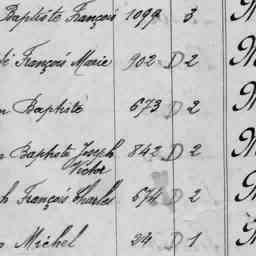 Baptiste François 1099 3 M
François Marie 902 D 2 M
Baptiste 673 D 2 M
Baptiste Joseph 842 D 2 M
Victor
François Charles 674 D 2 M
Michel 24 D 1 M